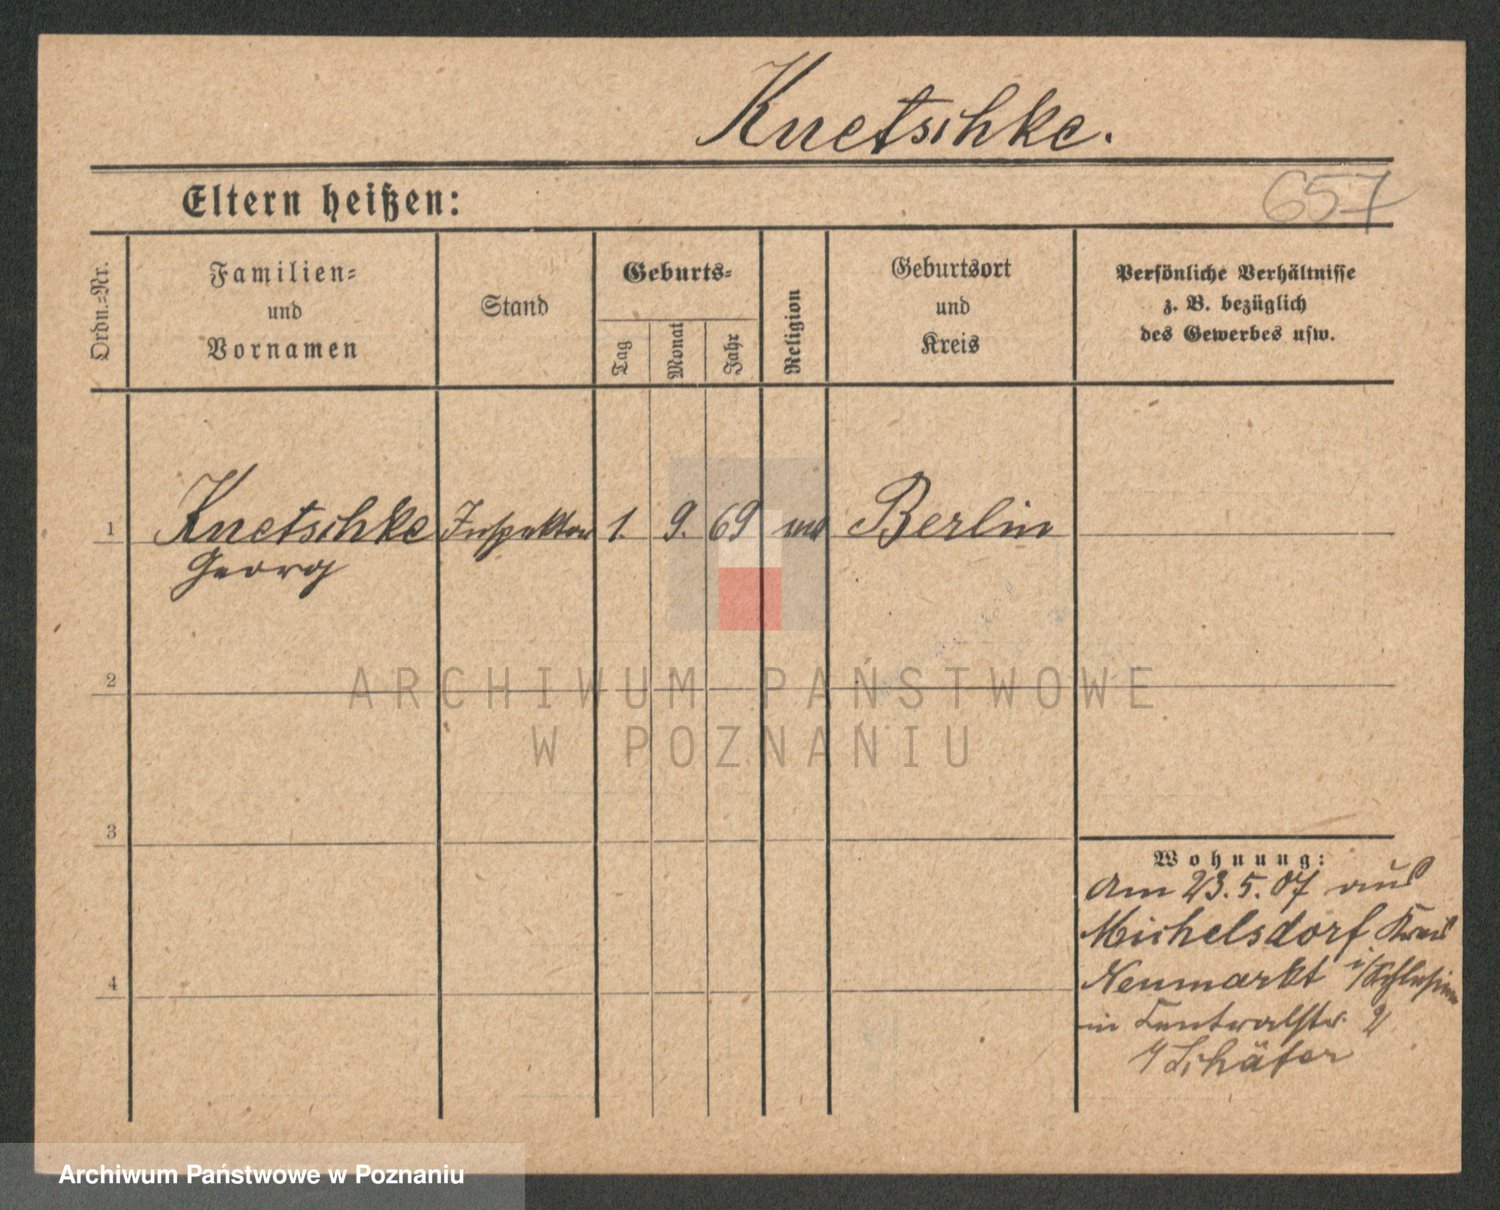 Knetschke.
Eltern heißen:
657
Ordn.-Nr.
Familien-
und
Vornamen
Stand
Geburts-
Tag
Monat
Jahr
Religion
Geburtsort
und
Kreis
Persönliche Verhältnisse
z. B. bezüglich
des Gewerbes usw.
1 Knetschke Inspektor 1. 9. 69 Berlin
Georg
2
ARCHIWUM PAŃSTWOWE
W POZNANIU
3
Wohnung:
Am 23.5.07 aus
Michelsdorf Kreis
4
Neumarkt i/Schlesien
in Centralstr. 2
Schäfer
Archiwum Państwowe w Poznaniu